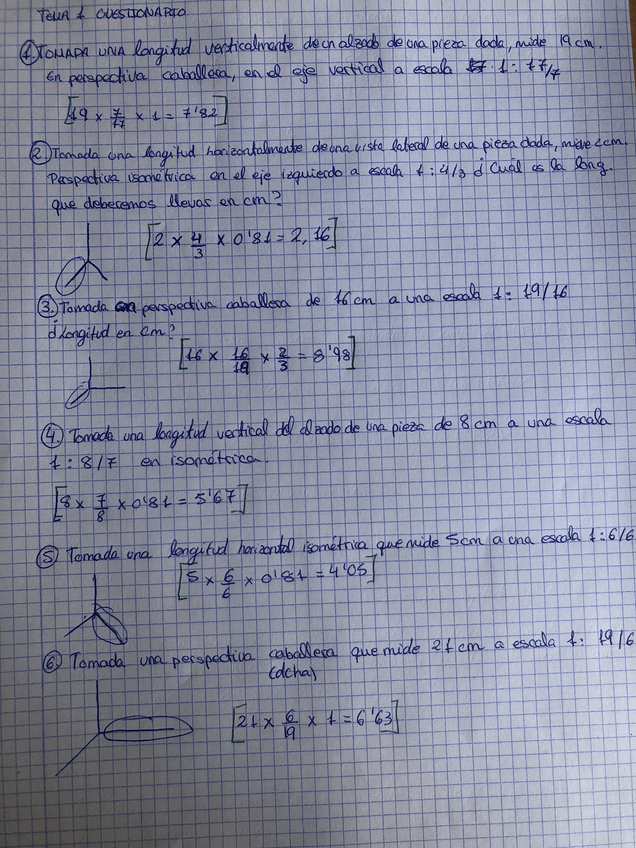 TEMA 1 CUESTIONARIO
1. TOMADA UNA longitud verticalmente de un alzado de una pieza dada, mide 19cm.
En perspectiva caballera, en el eje vertical a escala 1: 17/7
[19 x 7/17 x 1 = 7'82]
2. Tomada una longitud horizontalmente de una vista lateral de una pieza dada, mide 2cm.
Perspectiva isométrica en el eje izquierdo a escala 1: 4/3 ¿Cuál es la long.
que deberemos llevar en cm?
[2 x 4/3 x 0'81 = 2,16]
3. Tomada en perspectiva caballera de 16 cm a una escala 1: 19/16
¿Longitud en cm?
[16 x 16/19 x 2/3 = 8'98]
4. Tomada una longitud vertical del alzado de una pieza de 8 cm a una escala
1: 8/7 en isométrica.
[8 x 7/8 x 0'81 = 5'67]
5. Tomada una longitud horizontal isométrica que mide 5cm a una escala 1:6/6
[5 x 6/6 x 0'81 = 4'05]
6. Tomada una perspectiva caballera que mide 21 cm a escala 1: 19/6
(dcha)
[21 x 6/19 x 1 = 6'63]